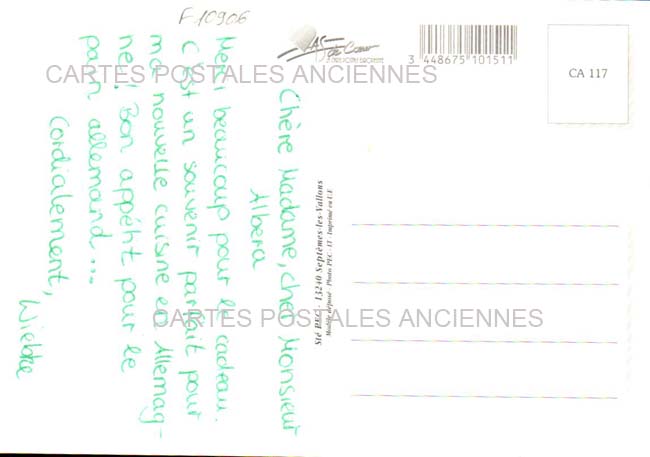 F 10906
AS de Coeur
3 448675 101511
CA 117
CARTES POSTALES ANCIENNES
Chère Madame, cher Monsieur
Albera
Merci beaucoup pour le cadeau.
C'est un souvenir parfait pour
ma nouvelle cuisine en Allemag-
ne! Bon appétit pour le
pain allemand...
Cordialement,
Wiebke
Sté PEC - 13240 Septèmes-les-Vallons
Modèle déposé - Photo PEC - IT - Imprimé en U.E
CARTES POSTALES ANCIENNES